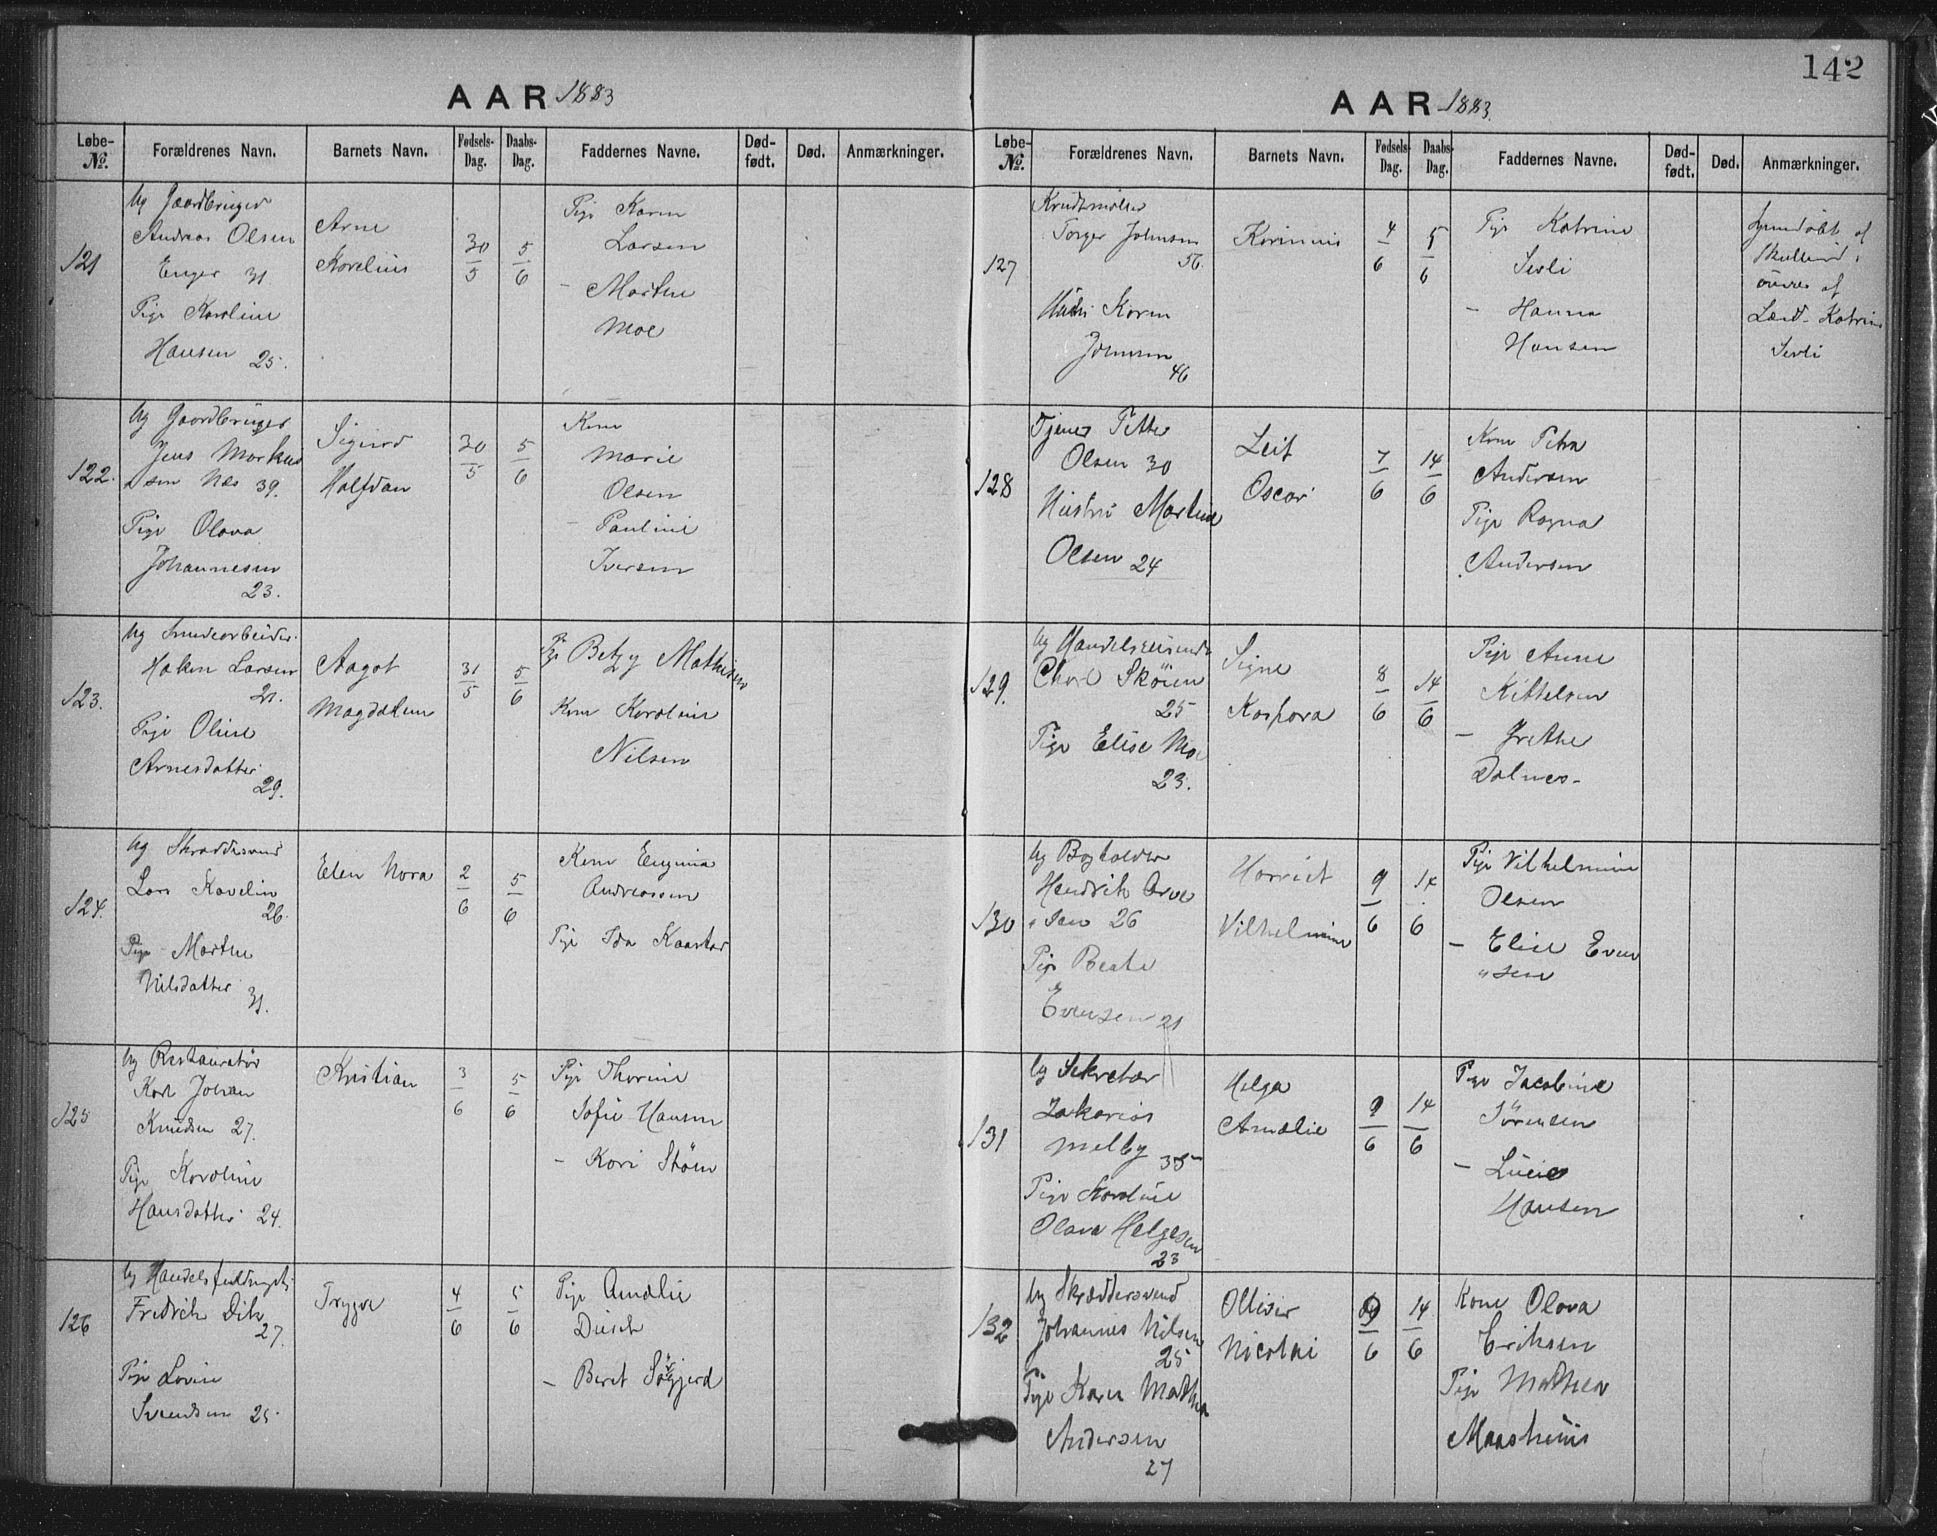 142
AAR 1883
Løbe-№. Forældrenes Navn. Barnets Navn. Fødsels-Dag. Daabs-Dag. Faddernes Navne. Død-født. Død. Anmærkninger.
121
Ug Gaardbruger
Andreas Olsen
Enger 31
Pige Karoline
Hansen 25.
Arne
Korelius
30/5
5/6
Pige Karen
Larsen
– Marthe
Moe
122.
Ug Gaardbruger
Jens Markus
"sen Næs 39.
Pige Olava
Johannesen
23.
Sigurd
Halfdan
30/5
5/6
Kone
Marie
Olsen
– Pauline
Iversen
123.
Ug Smedearbeider
Haken Larsen
21.
Pige Oline
Arnesdatter
29.
Aagot
Magdalene
31/5
5/6
Pige Betzy Mathisen
Kone Karoline
Nilsen
124.
Ug Skræddersvend
Lars Kavelin
26.
Pige Marthe
Nilsdatter
31.
Elen Nora
2/6
5/6
Kone Eugenia
Andreassen
Pige Ida Kaastad
125
Ug Restauratør
Karl Johan
Knudsen 27.
Pige Karoline
Hansdatter 24.
Kristian
3/6
5/6
Pige Thorine
Sofie Hansen
– Kari Støen
126
Ug Handelsfuldmægtig
Fredrik Dik
27.
Pige Lovise
Svendsen 25.
Trygve
4/6
5/6
Pige Amalie
– Beret
AAR 1883.
Løbe-№. Forældrenes Navn. Barnets Navn. Fødsels-Dag. Daabs-Dag. Faddernes Navne. Død-født. Død. Anmærkninger.
127
Torger Johnsen
56.
Karen
Johnsen
46
Korinius
4/6
5/6
Pige Katrine
Sevli
– Hanna
Hansen
af
af
Katrine
Sevli
128
Tjener Petter
Olsen 30
Hustru Martine
Olsen 24
Leif
Oscar
7/6
14/6
Kone Petra
Andersen
Pige Ragna
Andersen
129.
Ug Handelsreisende
Charl Skøien
25
Pige Elise Moe
23.
Signe
Kaspara
8/6
14/6
Pige Anne
Kittelsen
– Grethe
Dalnes
130
Ug Bogholder
Hendrik Arve
"sen 26
Pige Beate
Evensen 21
Harriet
Vilhelmine
9/6
14/6
Pige Vilhelmine
Olsen
– Elise Even
"sen
131
Ug Sekretær
Zakarias
Melby 35
Pige Karoline
Olava Helgesen
23
Helga
Amalie
9/6
14/6
Pige Jacobine
Sørensen
– Lucie
Hansen
132
Ug Skræddersvend
Johannes Nilsen
25
Pige Karen Mathea
Andersen
27
Olliver
Nicolai
9/6
14/6
Kone Olava
Eriksen
Pige Mathea